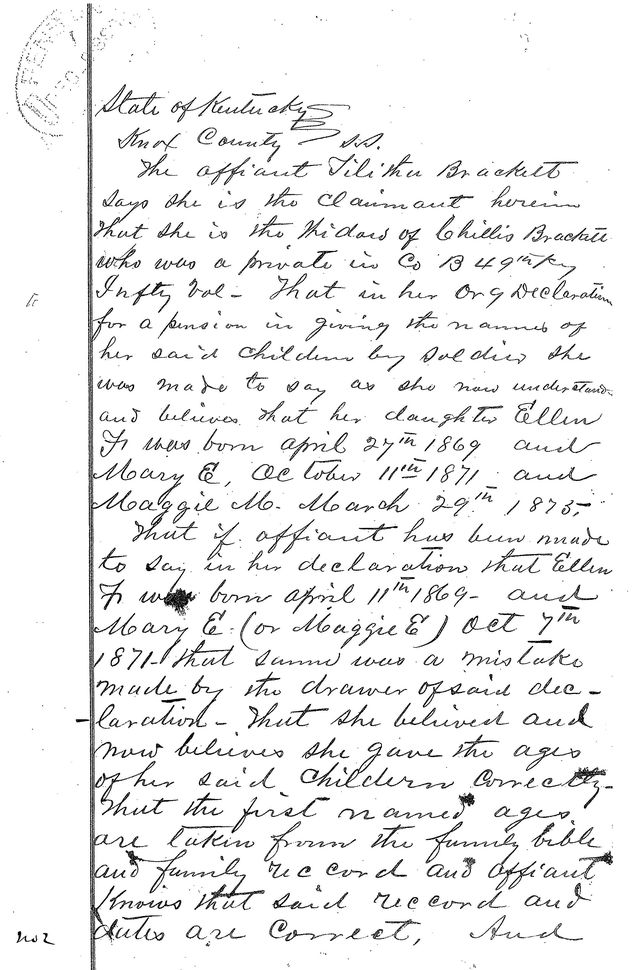 State of Kentucky
Knox County SS.
The affiant Tilitha Brackett
says she is the claimant herein
that she is the Widow of Chillis Brackett
who was a private in Co B 49th Ky
Infty Vol - That in her Org Declaration
for a pension in giving the names of
her said children by soldier she
was made to say as she now understands
and believes that her daughter Ellen
F was born april 27th 1869 and
Mary E, October 11th 1871 and
Maggie M. March 29th 1875,
That if affiant has been made
to say in her declaration that Ellen
F was born april 11th 1869 - and
Mary E (or Maggie E) Oct 7th
1871 - that same was a mistake
made by the drawer of said dec-
laration - That she believed and
now believes she gave the ages
of her said childern correctly -
That the first named ages
are taken from the family bible
and family reccord and affiant
Knows that said reccord and
dates are correct, And
no 2